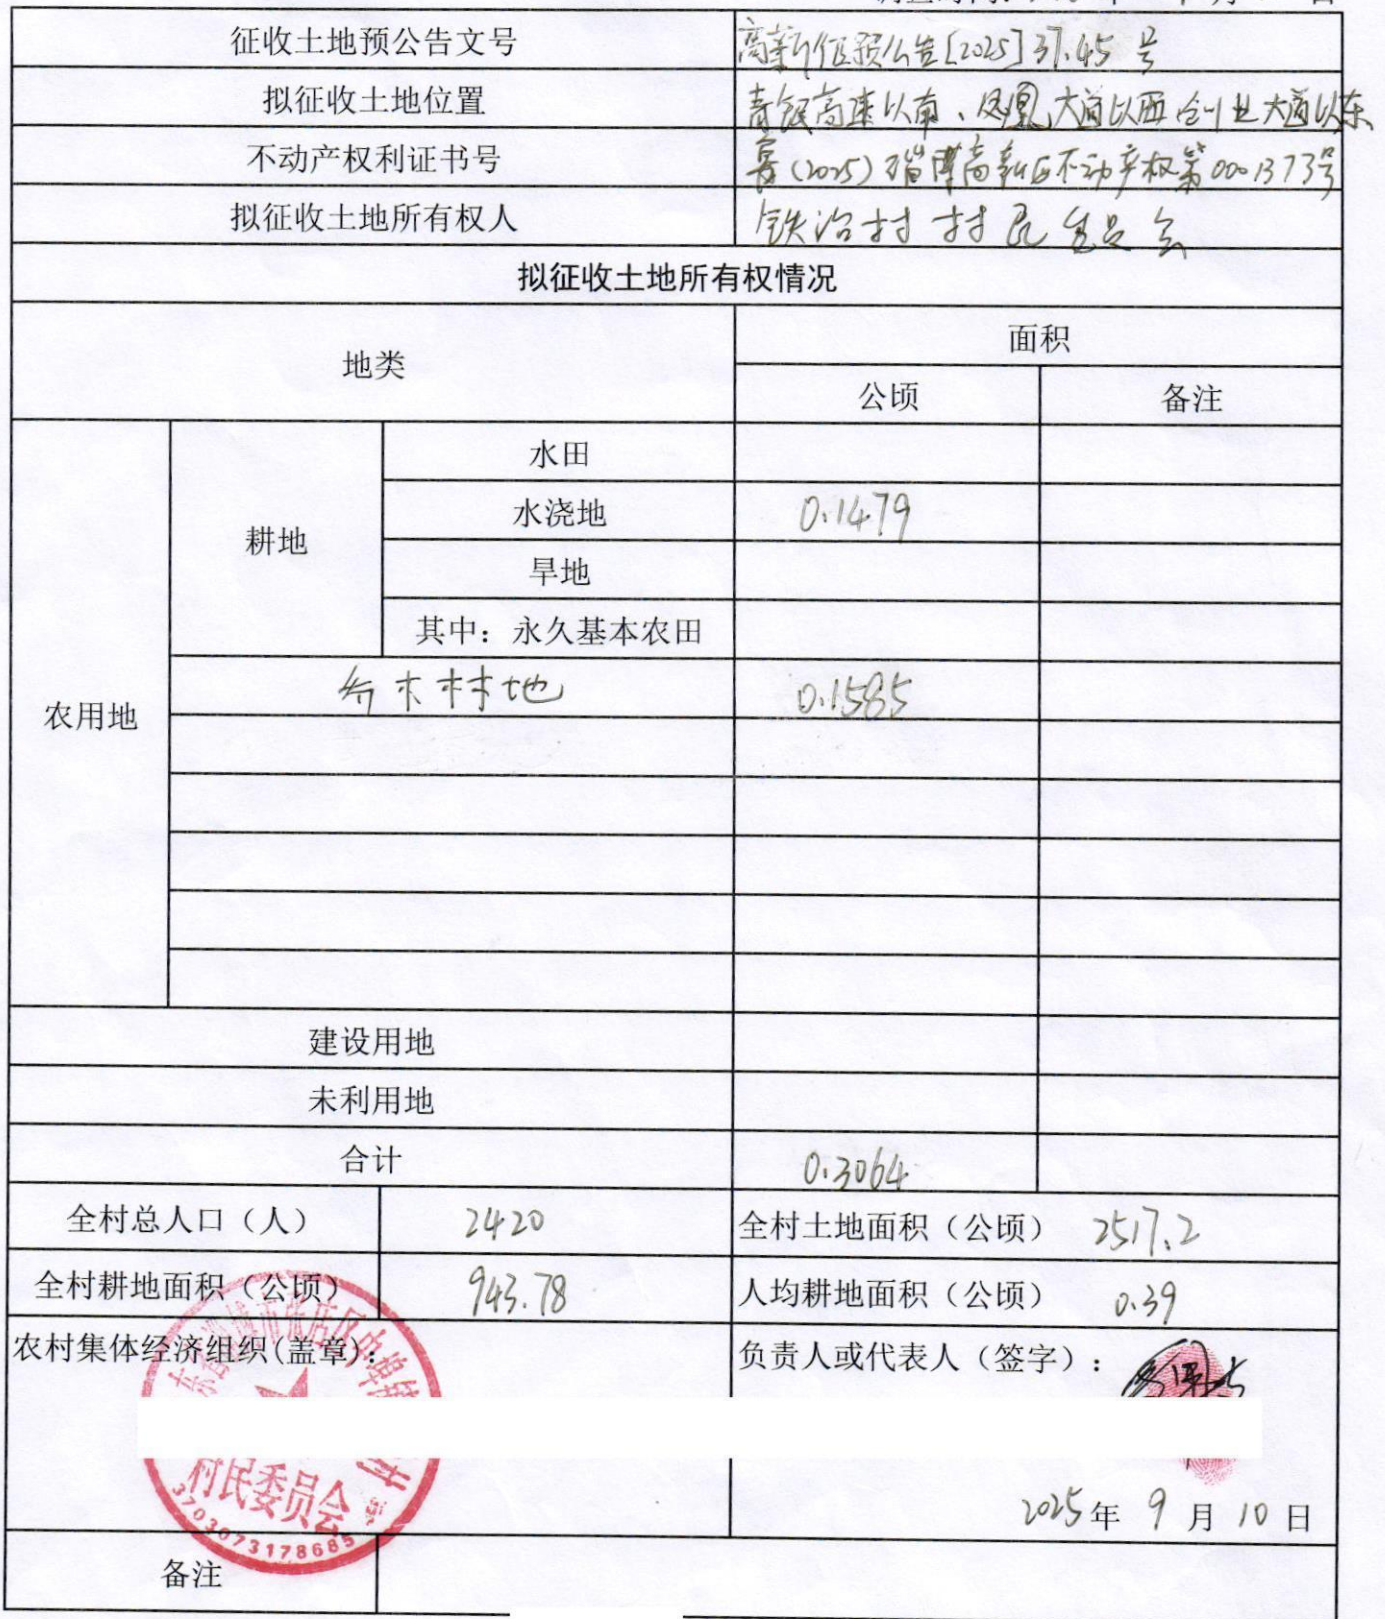 征收土地预公告文号 高新征预公告[2025]37.45号
拟征收土地位置 青银高速以南、凤凰大道以西创业大道以东
不动产权利证书号 鲁(2025)淄博高新区不动产权第0001373号
拟征收土地所有权人 铁冶村村民委员会
拟征收土地所有权情况
地类 面积
公顷 备注
农用地 耕地 水田
水浇地 0.1479
旱地
其中：永久基本农田
乔木林地 0.1585
建设用地
未利用地
合计 0.3064
全村总人口（人） 2420 全村土地面积（公顷） 2517.2
全村耕地面积（公顷） 943.78 人均耕地面积（公顷） 0.39
农村集体经济组织(盖章)： 负责人或代表人（签字）：
村民委员会
3703073178685
2025年 9月 10日
备注